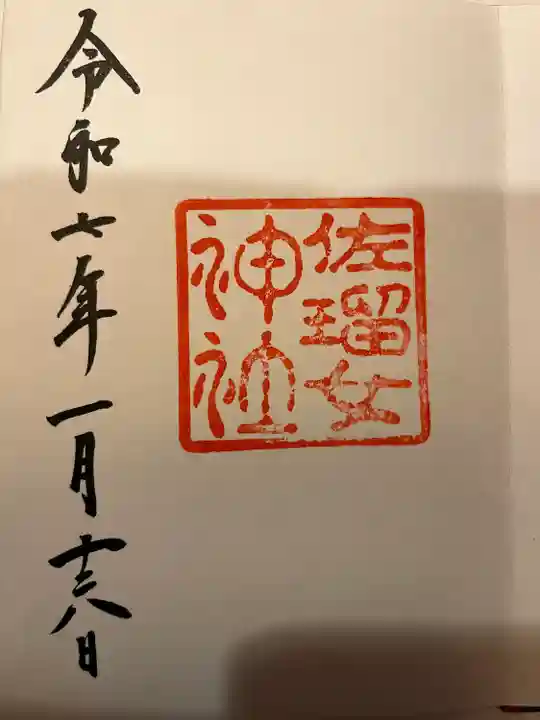 佐瑠女
神社
令和七年一月十六日